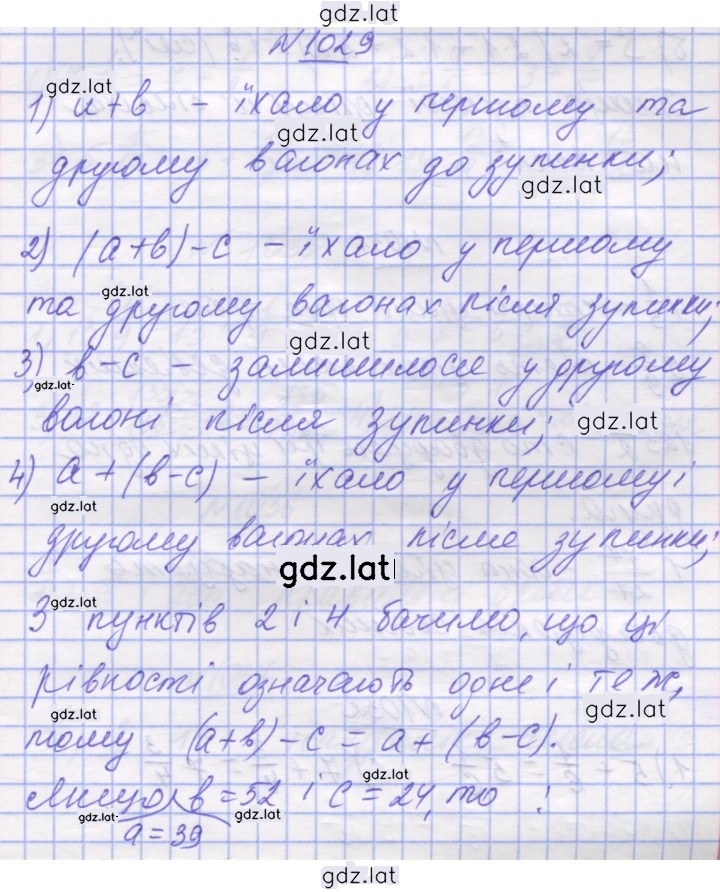 gdz.lat
N 1029
gdz.lat
1) a+в – їхало у першому та
gdz.lat
другому вагонах до зупинки;
gdz.lat
2) (a+в)-с – їхало у першому
gdz.lat
та другому вагонах після зупинки;
gdz.lat
3) в-с – залишилося у другому
gdz.lat
вагоні після зупинки;
gdz.lat
4) a+(в-с) – їхало у першому і
gdz.lat
другому вагонах після зупинки;
gdz.lat
З пунктів 2 і 4 бачимо, що ці
gdz.lat
рівності означають одне і те ж,
gdz.lat
gdz.lat
тому (a+в)-с = a+(в-с).
gdz.lat
Якщо в=52 і с=24, то :
a=39
gdz.lat
gdz.lat
gdz.lat